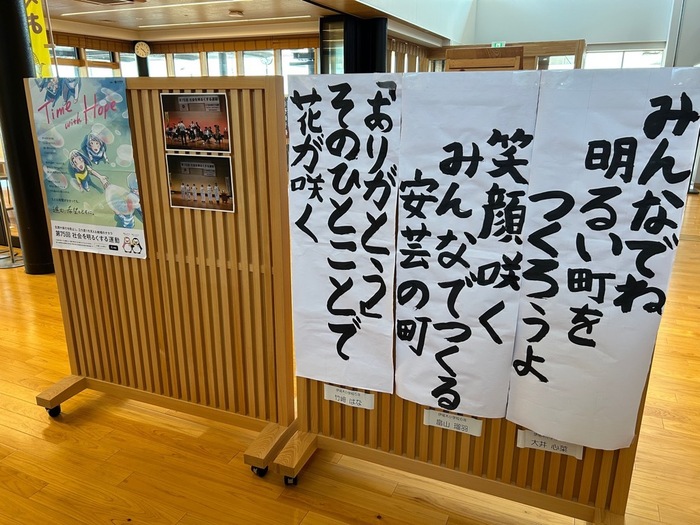 Time
with Hope
第75回 社会を明るくする運動
みんなでね
明るい町を
つくろうよ
笑顔咲く
みんなでつくる
安芸の町
「ありがとう」
そのひとことで
花が咲く
大井 心菜
畠山 瑠羽
竹崎 はな